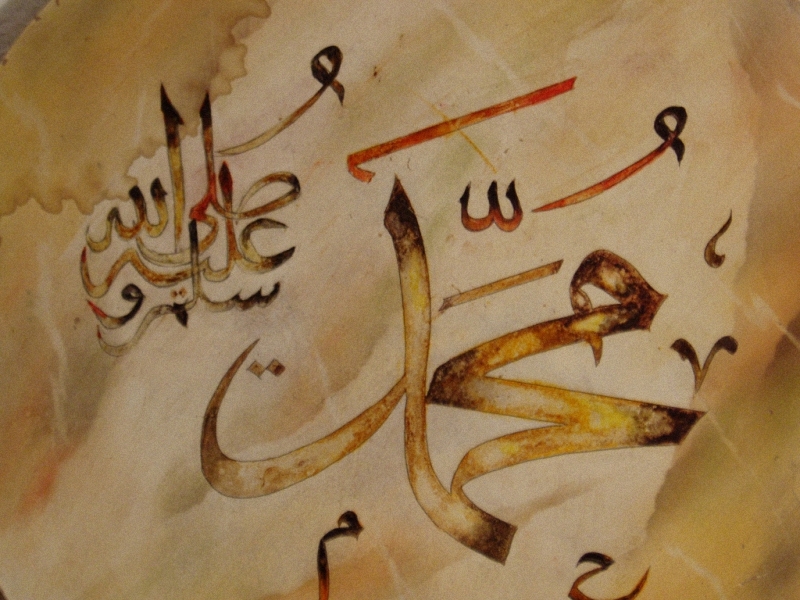 محمّد
صلى الله عليه وسلم